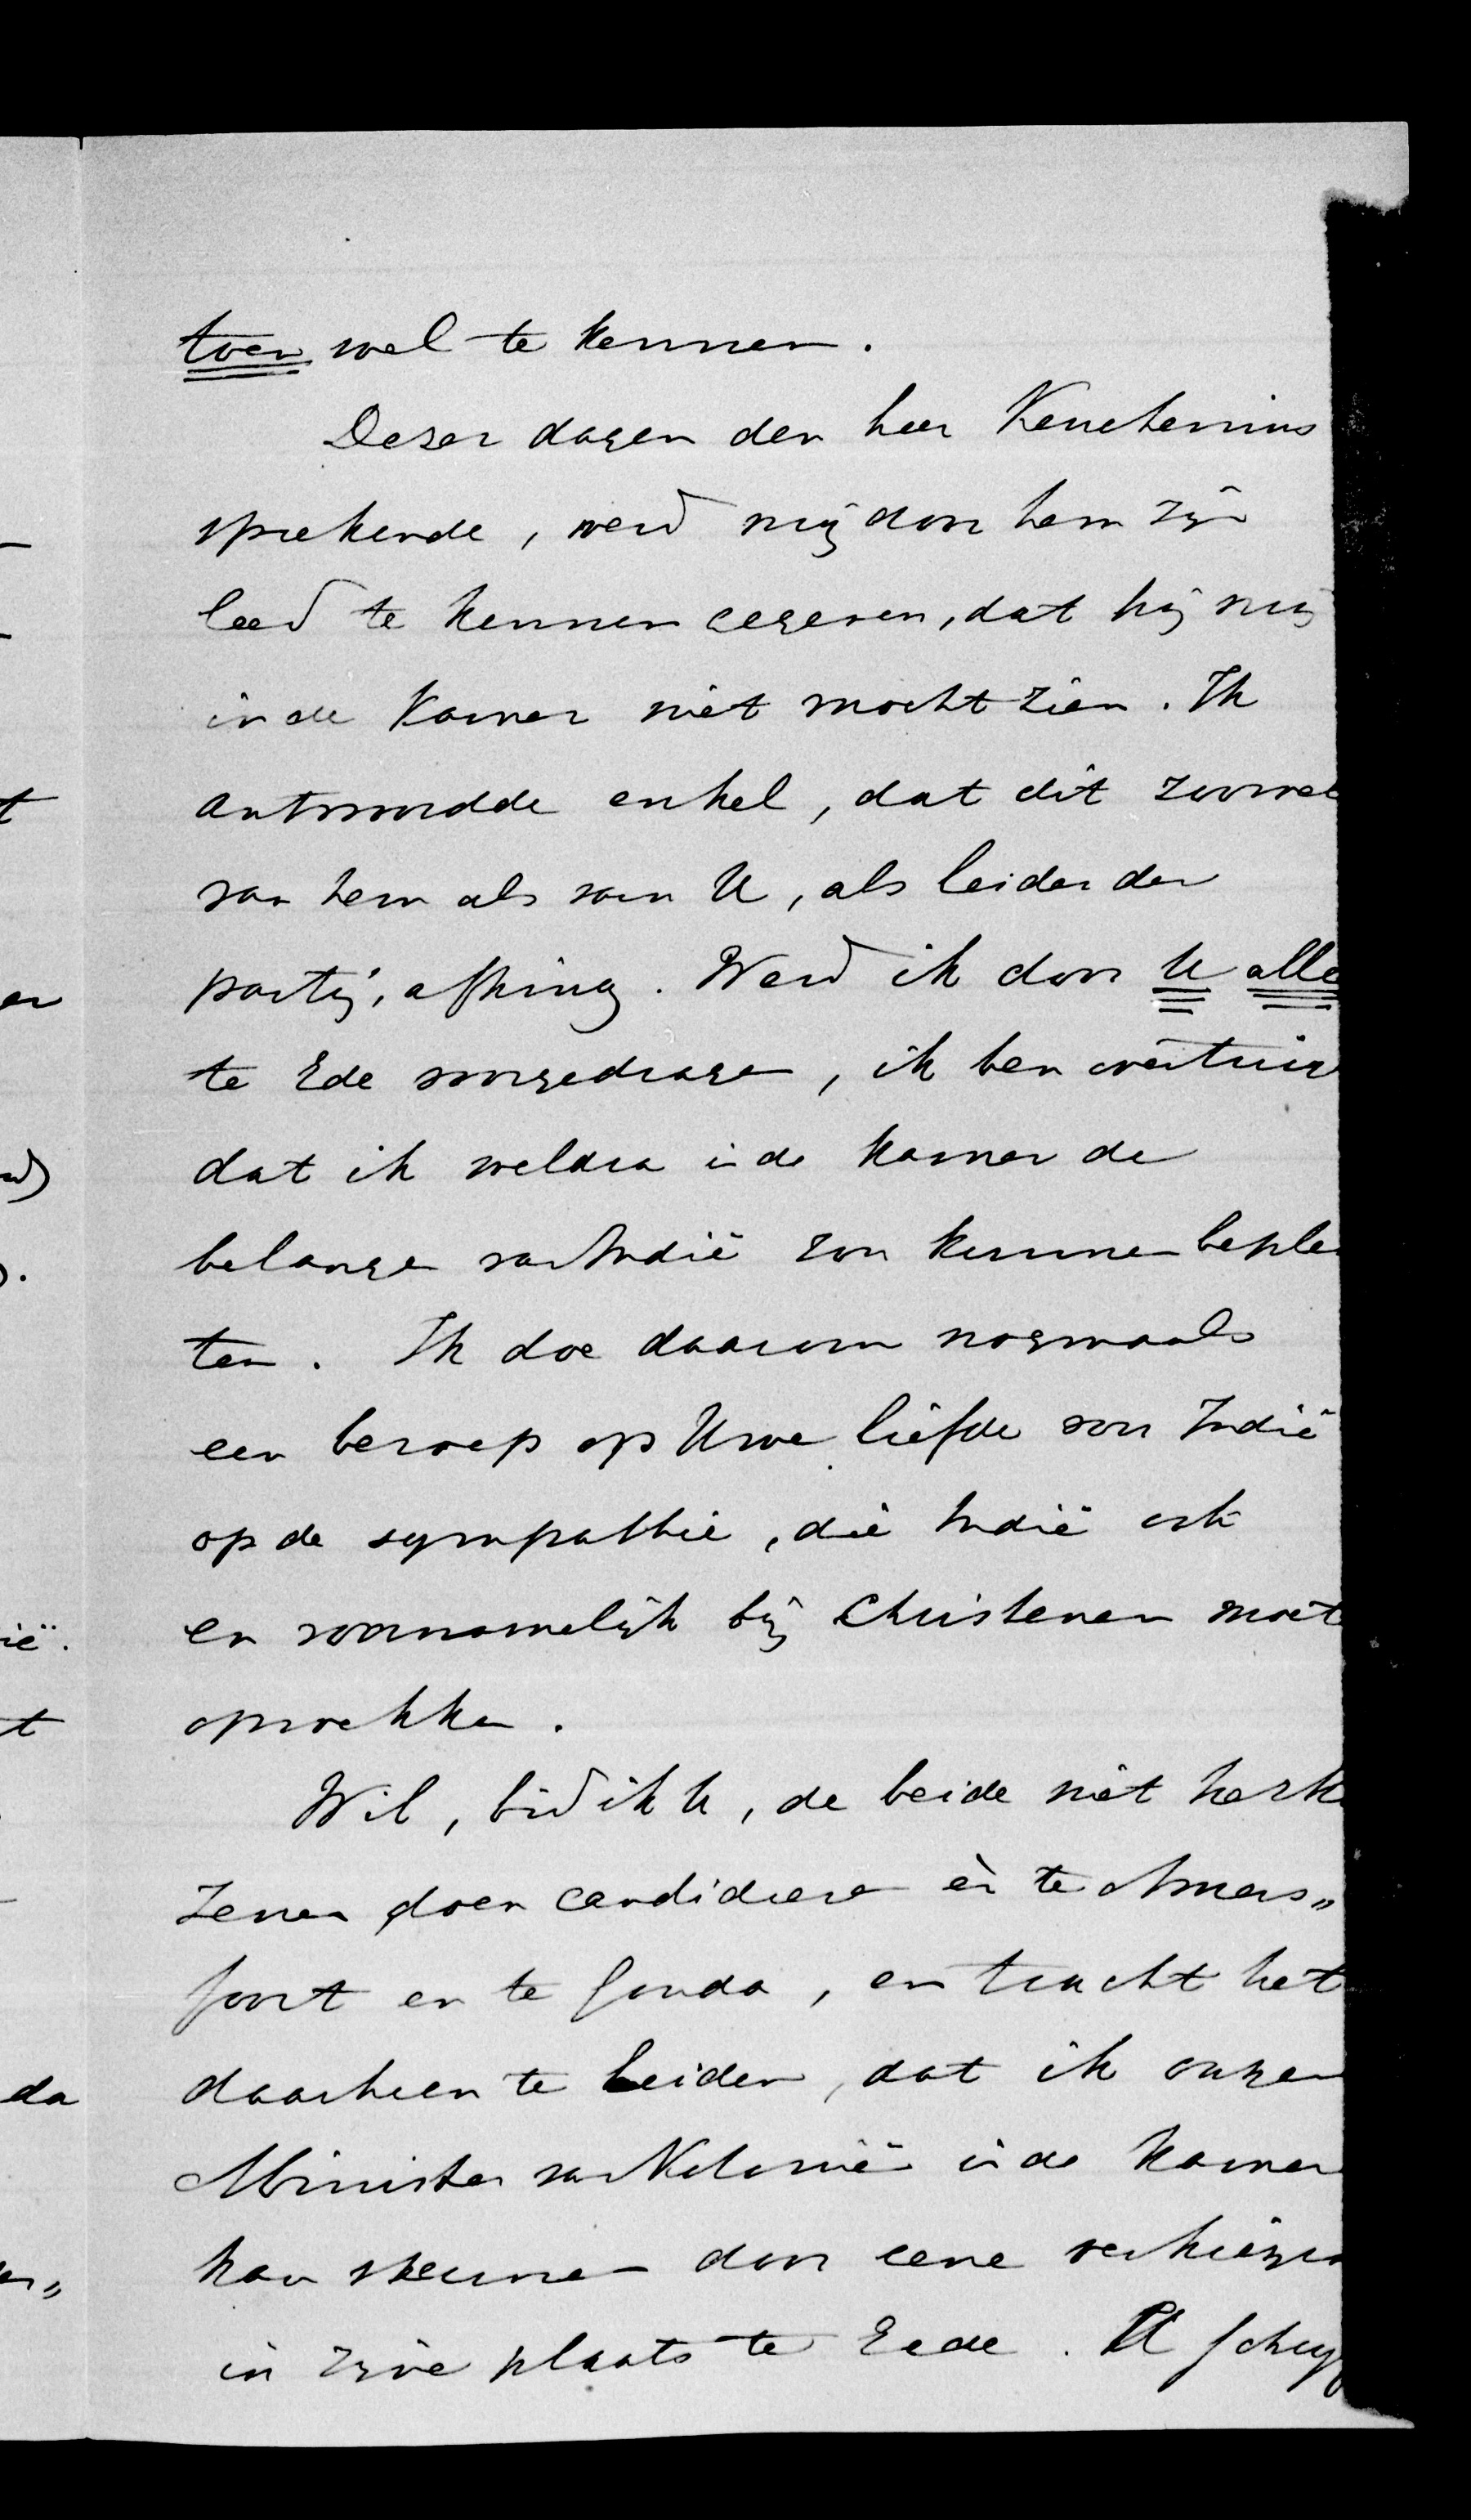 toen wel te kennen.
Dezer dagen den heer Keuchenius
sprekende, werd mij door hem zijn
leed te kennen gegeven, dat hij mij
in de Kamer niet mocht zien. Ik
antwoordde enkel, dat dit zoowel
van hem als van U, als leider der
partij, afhing. Werd ik door U alle
te Ede voorgedragen, ik ben overtuig
dat ik weldra in de Kamer de
belangen van Indië zou kunnen beplei
ten. Ik doe daarom nogmaals
een beroep op Uwe liefde voor Indië
op de sympathie, die Indië ook
en voornamelijk bij Christenen moet
opwekken.
Wil, bid ik U, de beide niet herko
zenen doen candideren èn te Amers„
foort en te Gouda, en tracht het
daarheen te leiden, dat ik onzen
Minister van Koloniën in de Kamer
kan steunen door eene verkiezin
in zijne plaats te Eede. U schrijf